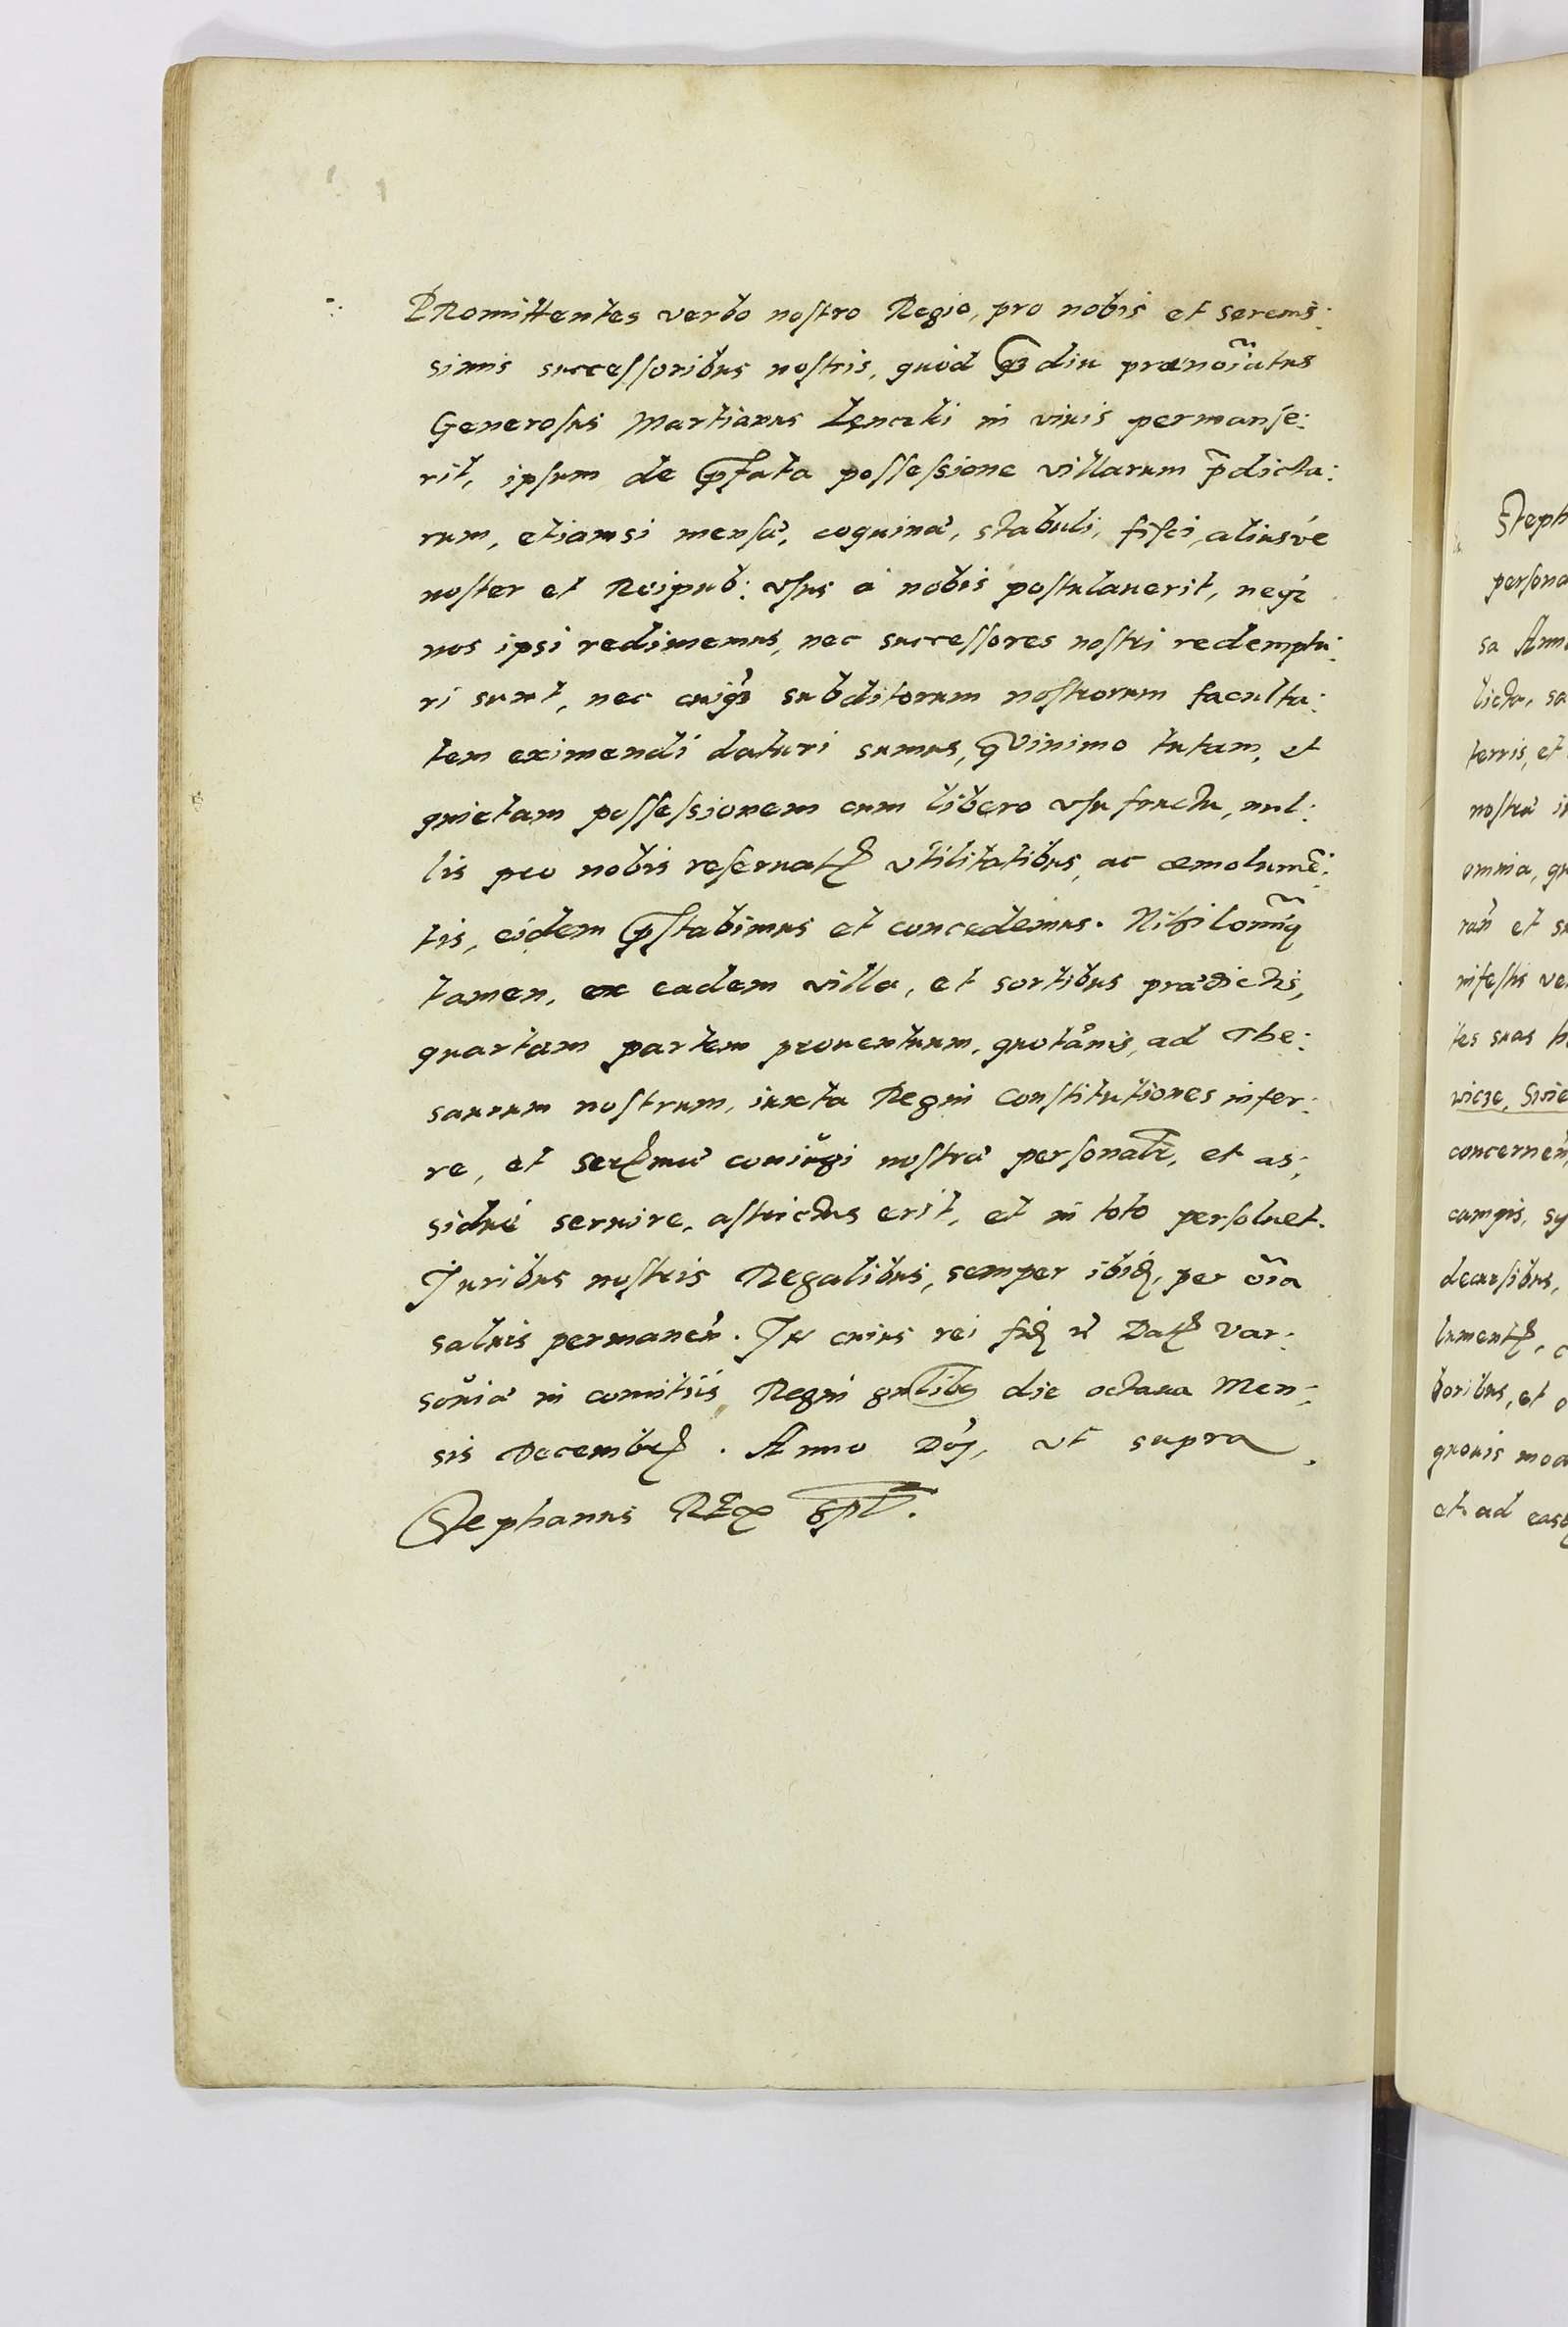 PRomittentes verbo nostro Regio, pro nobis et serenis:
simis successoribus nostris, quod qz diu prænoĩatus
Generosus Martianus Lęnczki in viuis permanse:
rit, ipsum de p̃fata possessione villarum p̃dicta:
rum, etiamsi mensæ, coquinæ, stabuli, fisci, aliusvé
noster et Reipub: vsus á nobis postulauerit, neqз
nos ipsi redimemus, nec successores nostri redemptu:
ri sunt, nec cuiqз subditorum nostrorum faculta:
tem eximendi daturi sumus, qVinimo tutam, et
quietam possessionem cum libero vsufructu, nul:
lis pro nobis reseruatꝭ vtilitatibus, ac æmolumẽ:
tis, eidem p̃stabimus et concedemus. Nihilomĩq
tamen, ex eadem villa, et sortibus prædictis,
quartam partem prouentuum, quotãnis, ad The:
saurum nostrum, iuxta Regni Constitutiones infer:
re, et serꝭmæ coniugi nostræ personalr̃, et as:
sidué seruire, astrictus erit, et in toto persoluet.
Juribus nostris Regalibus, semper ibiꝺ, per oĩa
saluis permaneñ. In cuius rei fiꝺ Datꝭ Var:
souiæ in comitijs Regni gnl̃ibꝫ die octaua Men:
sis Decembrꝭ. Anno Doj, vt supra.
Stephanus REx sp̃t.
Steph
persona
sa Ann
licta, sa
terris, et
nostra in
omnia, qu
rañ et su
nifestis ve
tes suas h
wicze, Swie
concerneñ
campis, sy
decursibus,
lumentꝭ, c
boribus, et o
quouis mod
et ad eas